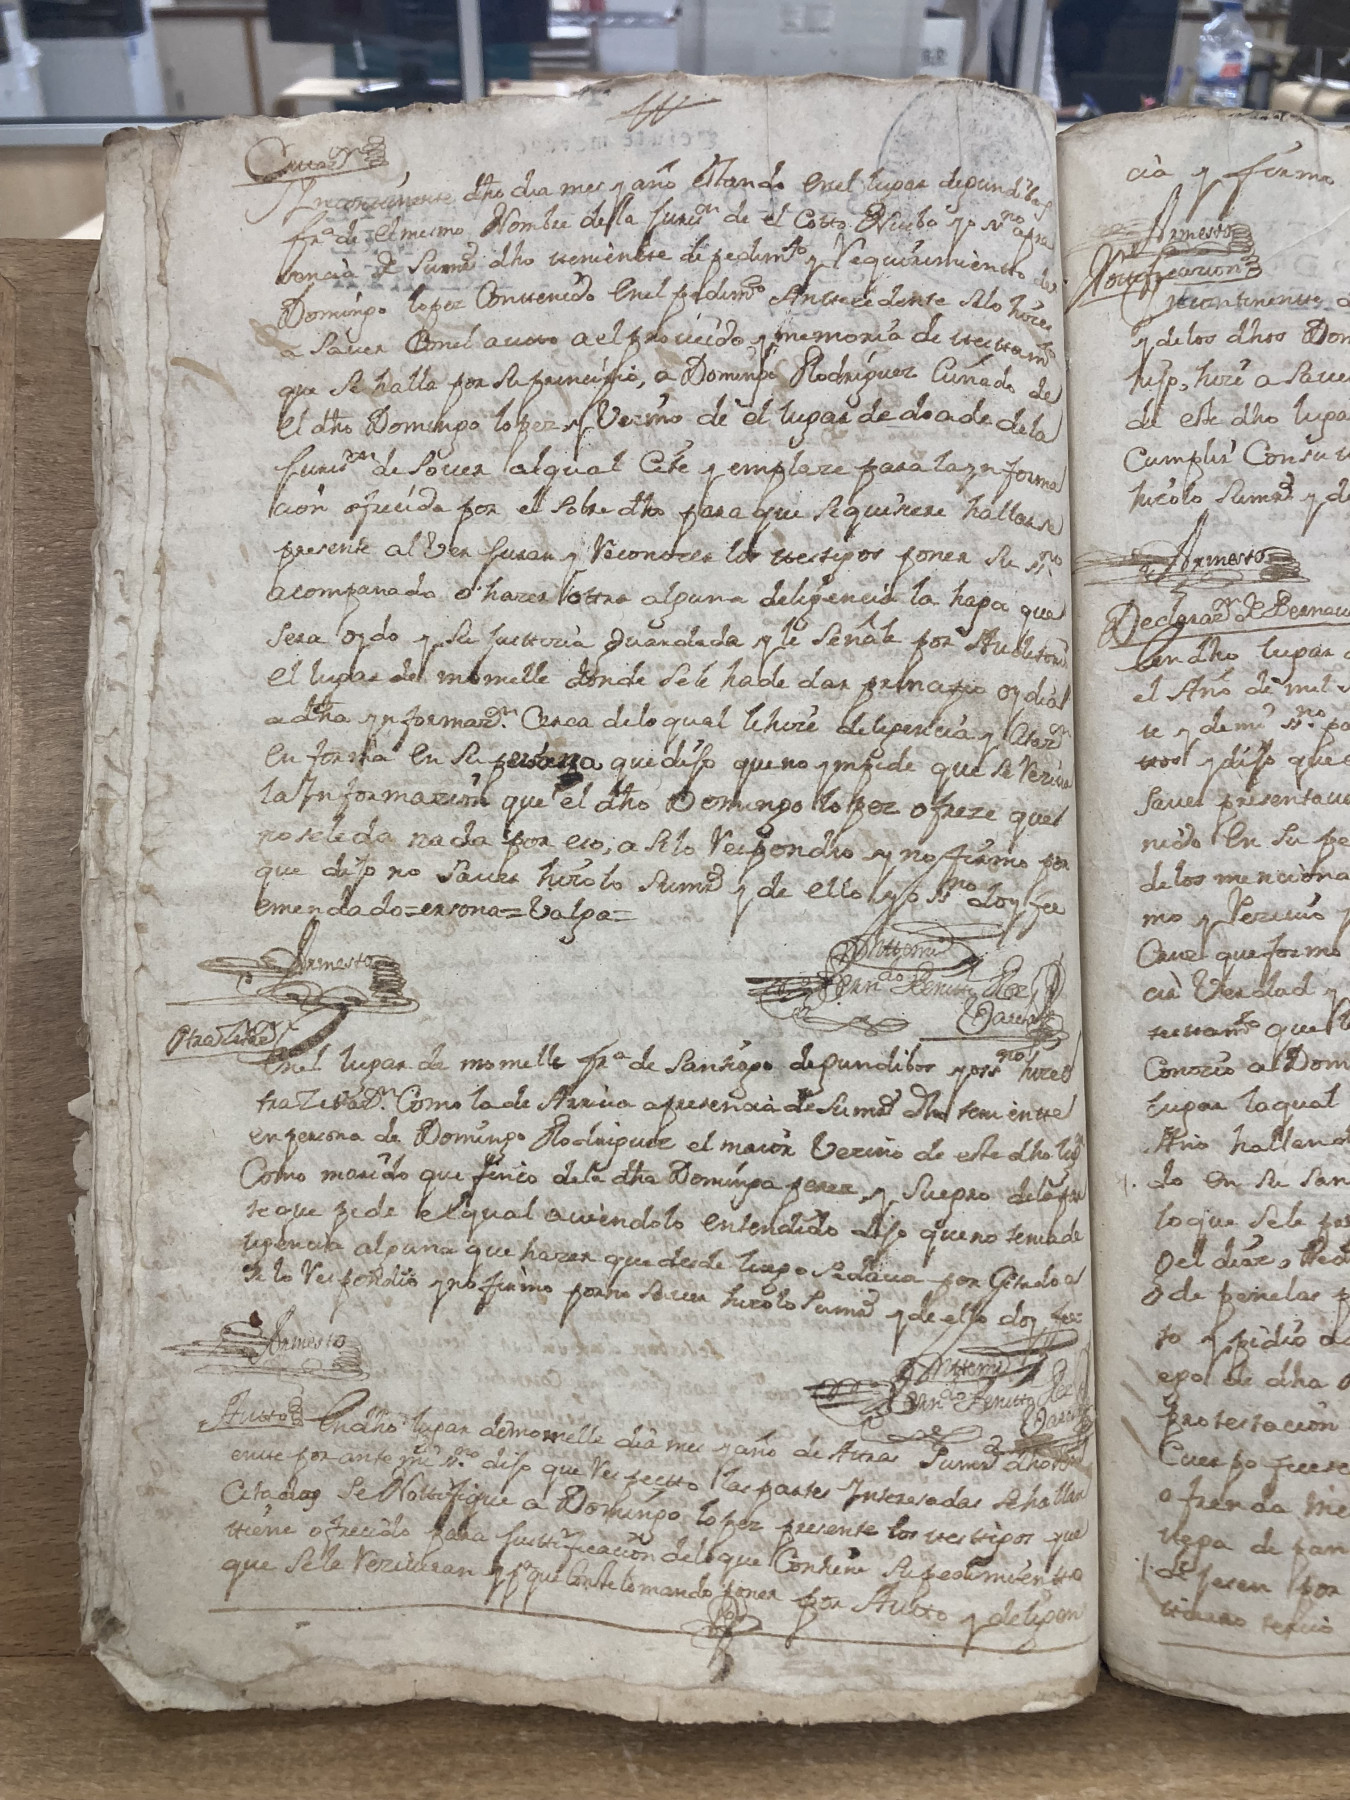 Citaz.n
Yncontinente dho dia mes y año estando en el lugar de gundibos
fr.a de el mesmo Nombre de la Juris.on de el Cotto Nuebo yo ss.no a pre
sencia de Sumrd dho theniente de pedim.to y Requirimiento de
Domingo lopez Contenido en el pedim.to Antezedente se lo hize
a Saver Con el autto a el proveido y memoria de testam.to
que se halla por su principio, a Domingo Rodriguez Cuñado de
el dho Domingo lopez y Vezino de el lugar de doade de la
Juris.on de Sover al qual Cité y emplaze para la ynforma
cion ofrecida por el sobre dho para que si quisiere hallarse
presente al Ver Jurar y Reconozer los testigos poner su ss.no
acompañado o hazer ottra alguna deligencia la haga que
sera oydo y su Justticia guardada y le señale por Auditorio
el lugar de momelle donde se le ha de dar principio oy dia
a dha ynformaz.n Cerca de lo qual le hize deligencia y Citaz.n
en forma en su persona que dijo que no ympide que se Reciva
la Ynformazion que el dho Domingo lopez ofreze que
no se le da nada por eso, asi lo Respondio y no firmo por
que dijo no Saver hizolo Sumrd y de ello yo ss.no doy fee
emendado=ersona=Valga=
Armesto
Antte mi
Fern.do Benitto
Otra Zitaz.n
En el lugar de momelle fr.a de Santiago de gundibos yo ss.no hize o
tra Zitaz.n Como la de Arriva a presencia de Sumrd dho teniente
en persona de Domingo Rodriguez el maior Vezino de este dho lug.r
Como marido que finco de la dha Dominga perez, y Suegro de la par
te que pide el qual aviendolo entendido dijo que no tenia de
ligencia alguna que hazer que desde luego se dava por Citado a
si lo Respondio y no firmo por no Saver hizolo Sumrd y de ello doy fee
Armesto
Antte mi
Fern.do Benitto
Autto
En dho lugar de momelle dia mes y año de Attras Sumrd dho theni
ente por ante mi ss.no dijo que Respectto las partes Ynteresadas se hallan
Citadas Se Nottifique a Domingo lopez presente los testigos que
tiene ofrecido para Justtificacion de lo que Contiene su pedimiento
que se le Reciviran y p.a que Conste lo mando poner por Autto y deligen
cia y firmo
Armesto
Nottificazion
Yncontinente
y de los dhos Dom
hijo, hize a Saver
de este dho lugar
Cumplir Con su
hizolo Sumrd y de
Armesto
Declaraz.n de Bernav
En dho lugar
el Año de mil
te y de mi ss.no
y dijo que
Saver presentava
nido en su pe
de los menciona
mo y Vezino
Cruz que formo
cia Verdad y
testam.to que
Conozio a Dom
lugar la qual
do en su San
lo que se le
to y pidio
de dha
protestacion
Cuerpo fuese
ofrenda
de pan
por
tercio